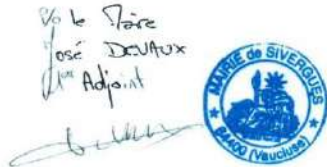 Po le Maire
José DEVAUX
1er Adjoint
MAIRIE de SIVERGUES
84400 (Vaucluse)